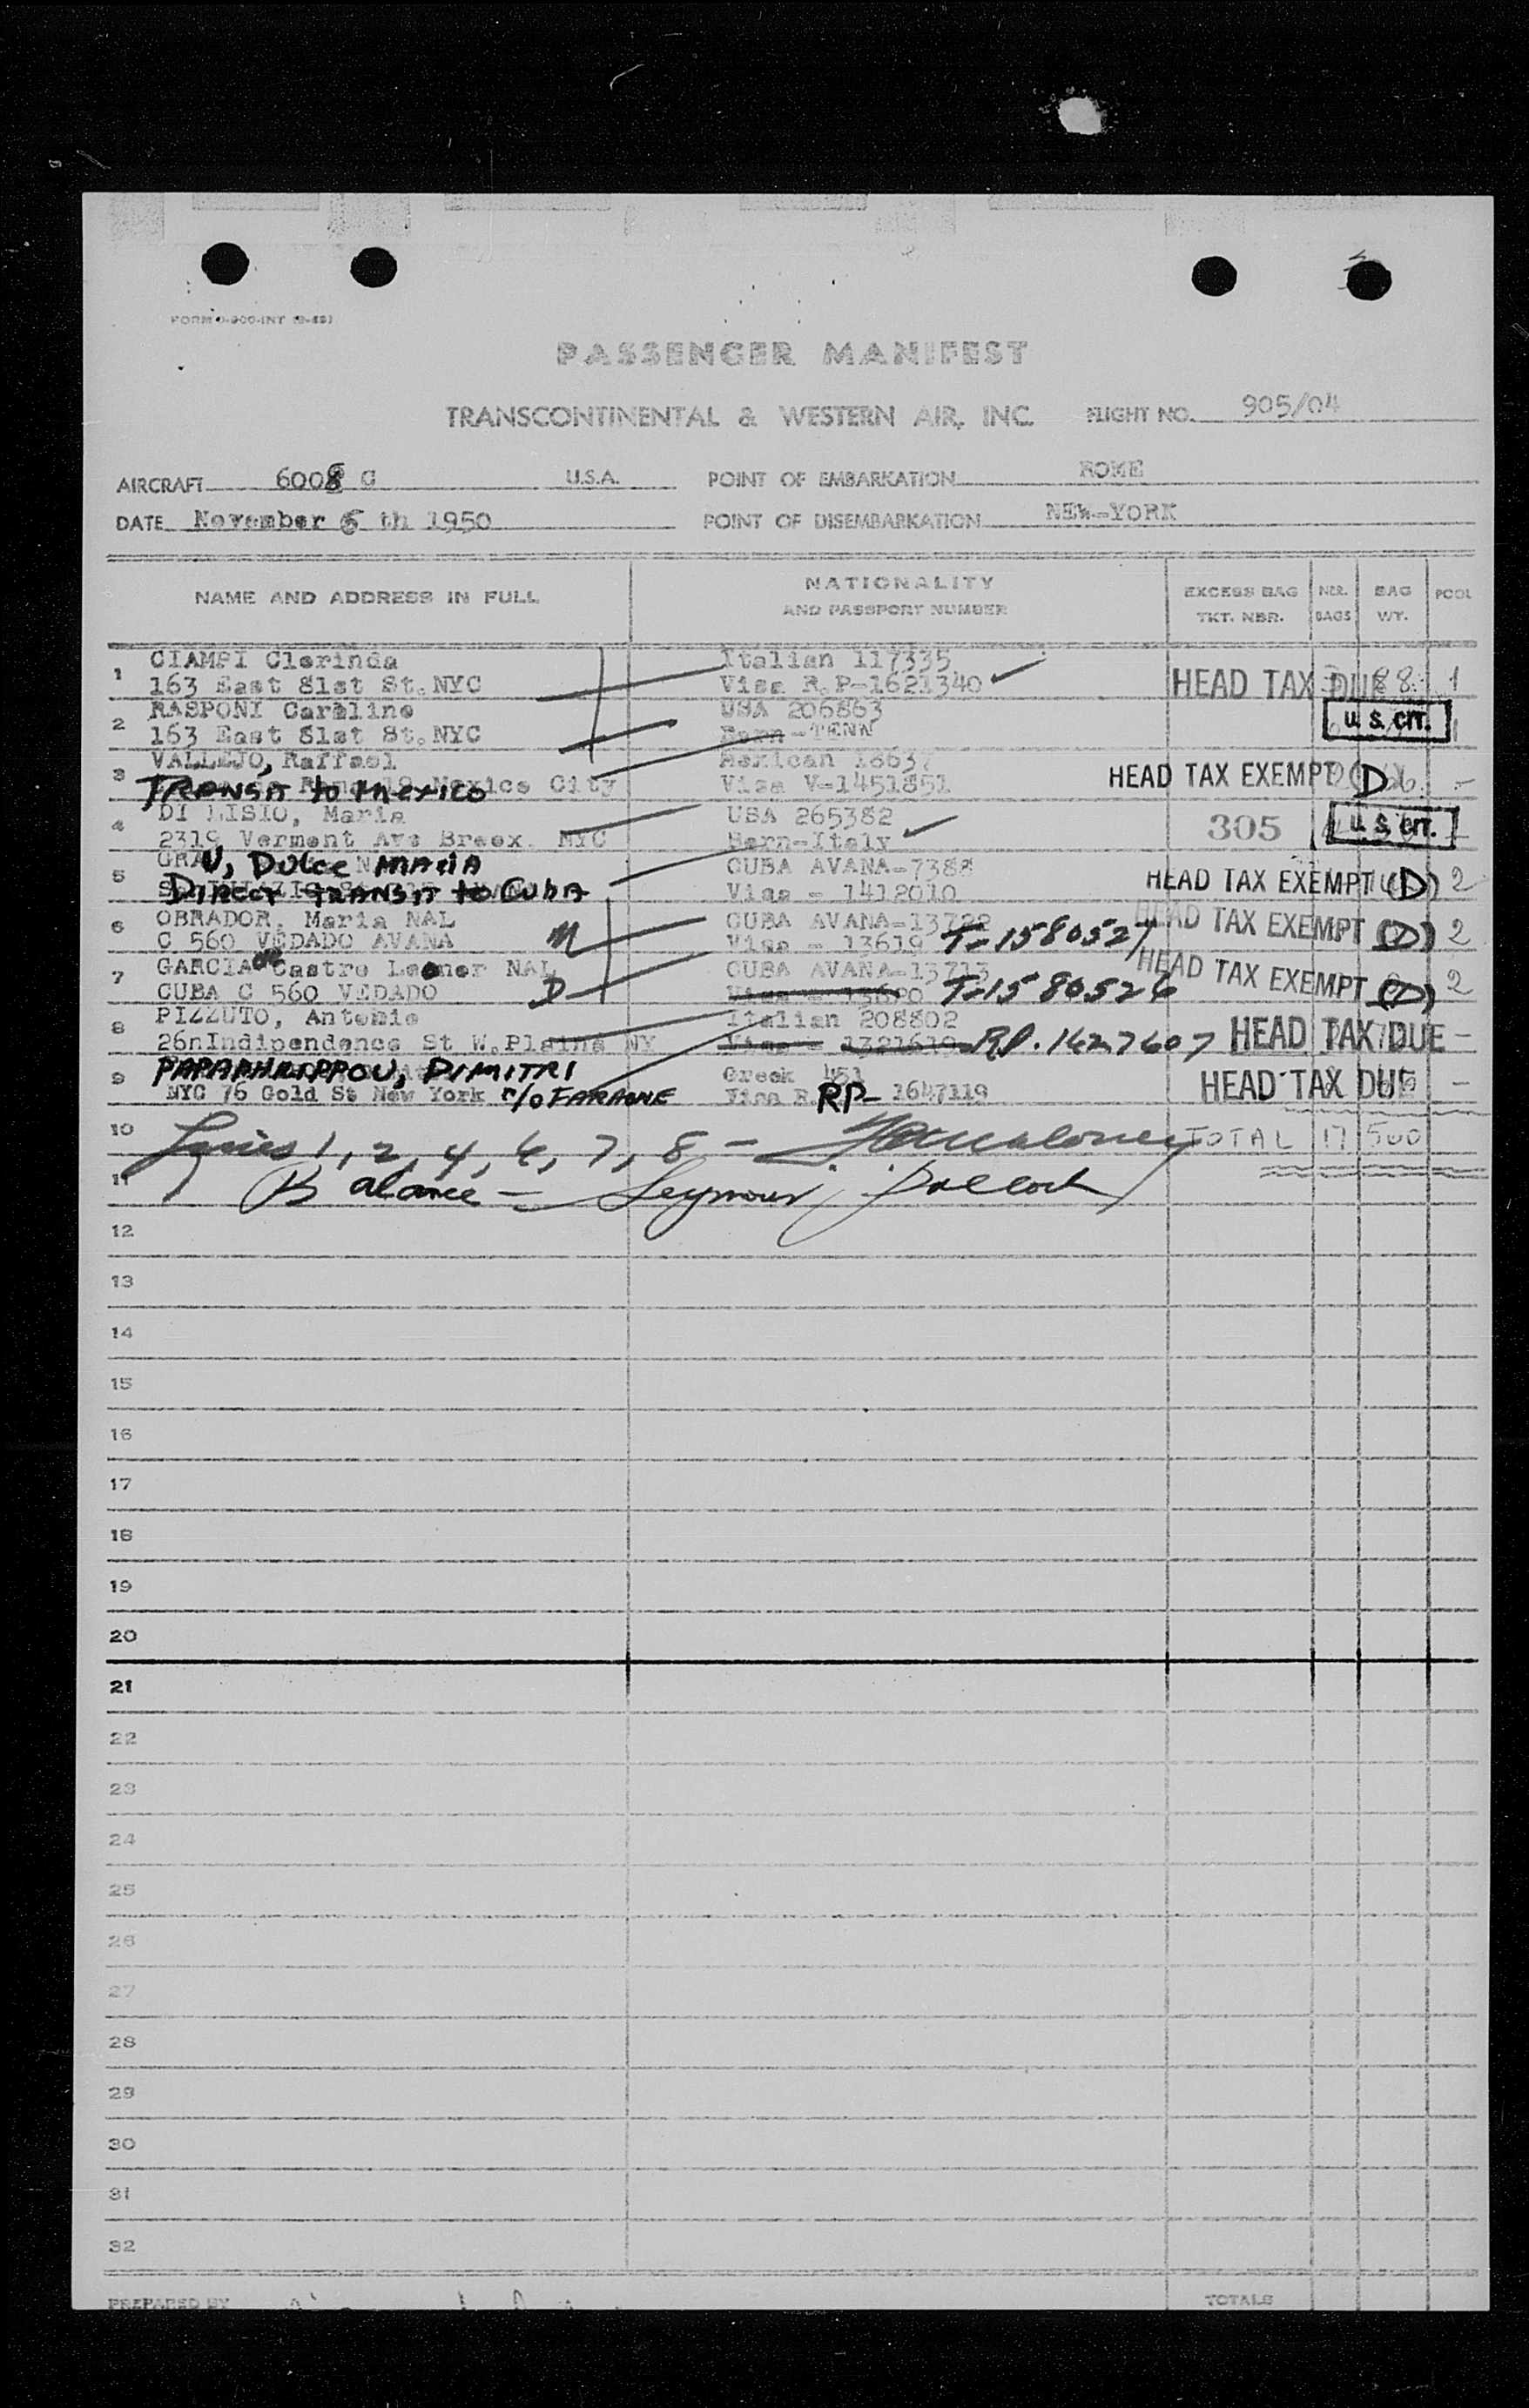 FORM
PASSENGER MANIFEST
TRANSCONTINENTAL & WESTERN AIR, INC. FLIGHT NO. 905/04
AIRCRAFT 6008 C U.S.A. POINT OF EMBARKATION ROME
DATE November 6 th 1950 POINT OF DISEMBARKATION NEW-YORK
NAME AND ADDRESS IN FULL NATIONALITY AND PASSPORT NUMBER EXCESS BAG TKT. NBR. NBR. BAGS BAG WT. POOL
1 CIAMPI Clorinda Italian 117335
163 East 81st St. NYC Visa R.P-1621340 HEAD TAX DUE 88 1
2 RASPONI Caroline USA 206863
163 East 81st St. NYC Born -TENN U.S. CIT.
3 VALLEJO, Raffael Mexican 18637
TRANSIT to MEXICO Mexico City Visa V-1451851 HEAD TAX EXEMPT D -
4 DI LISIO, Maria USA 265382
2319 Vermont Ave Broox. NYC Born-Italy 305 U.S. CIT.
5 GRAU, Dulce MARIA CUBA AVANA-7388
DIRECT TRANSIT to CUBA Visa - 1412010 HEAD TAX EXEMPT (D) 2
6 OBRADOR, Maria NAL CUBA AVANA-13722
C 560 VEDADO AVANA M Visa - 13619 T-1580527 HEAD TAX EXEMPT (D) 2
7 GARCIA de Castro Leonor NAL CUBA AVANA-13713
CUBA C 560 VEDADO D Visa - 13620 T-1580526 HEAD TAX EXEMPT (D) 2
8 PIZZUTO, Antonio Italian 208802
26nIndipendence St W.Plains NY Visa - 1321619 RP. 1427607 HEAD TAX DUE -
9 PAPAPHILIPPOU, DIMITRI Greek 451
NYC 76 Gold St New York c/o FARAONE Visa RP- 1647119 HEAD TAX DUE -
10 Lines 1, 2, 4, 6, 7, 8 - TOTAL 17 500
11 Balance - Seymour Pollock
12
13
14
15
16
17
18
19
20
21
22
23
24
25
26
27
28
29
30
31
32
PREPARED BY TOTALS